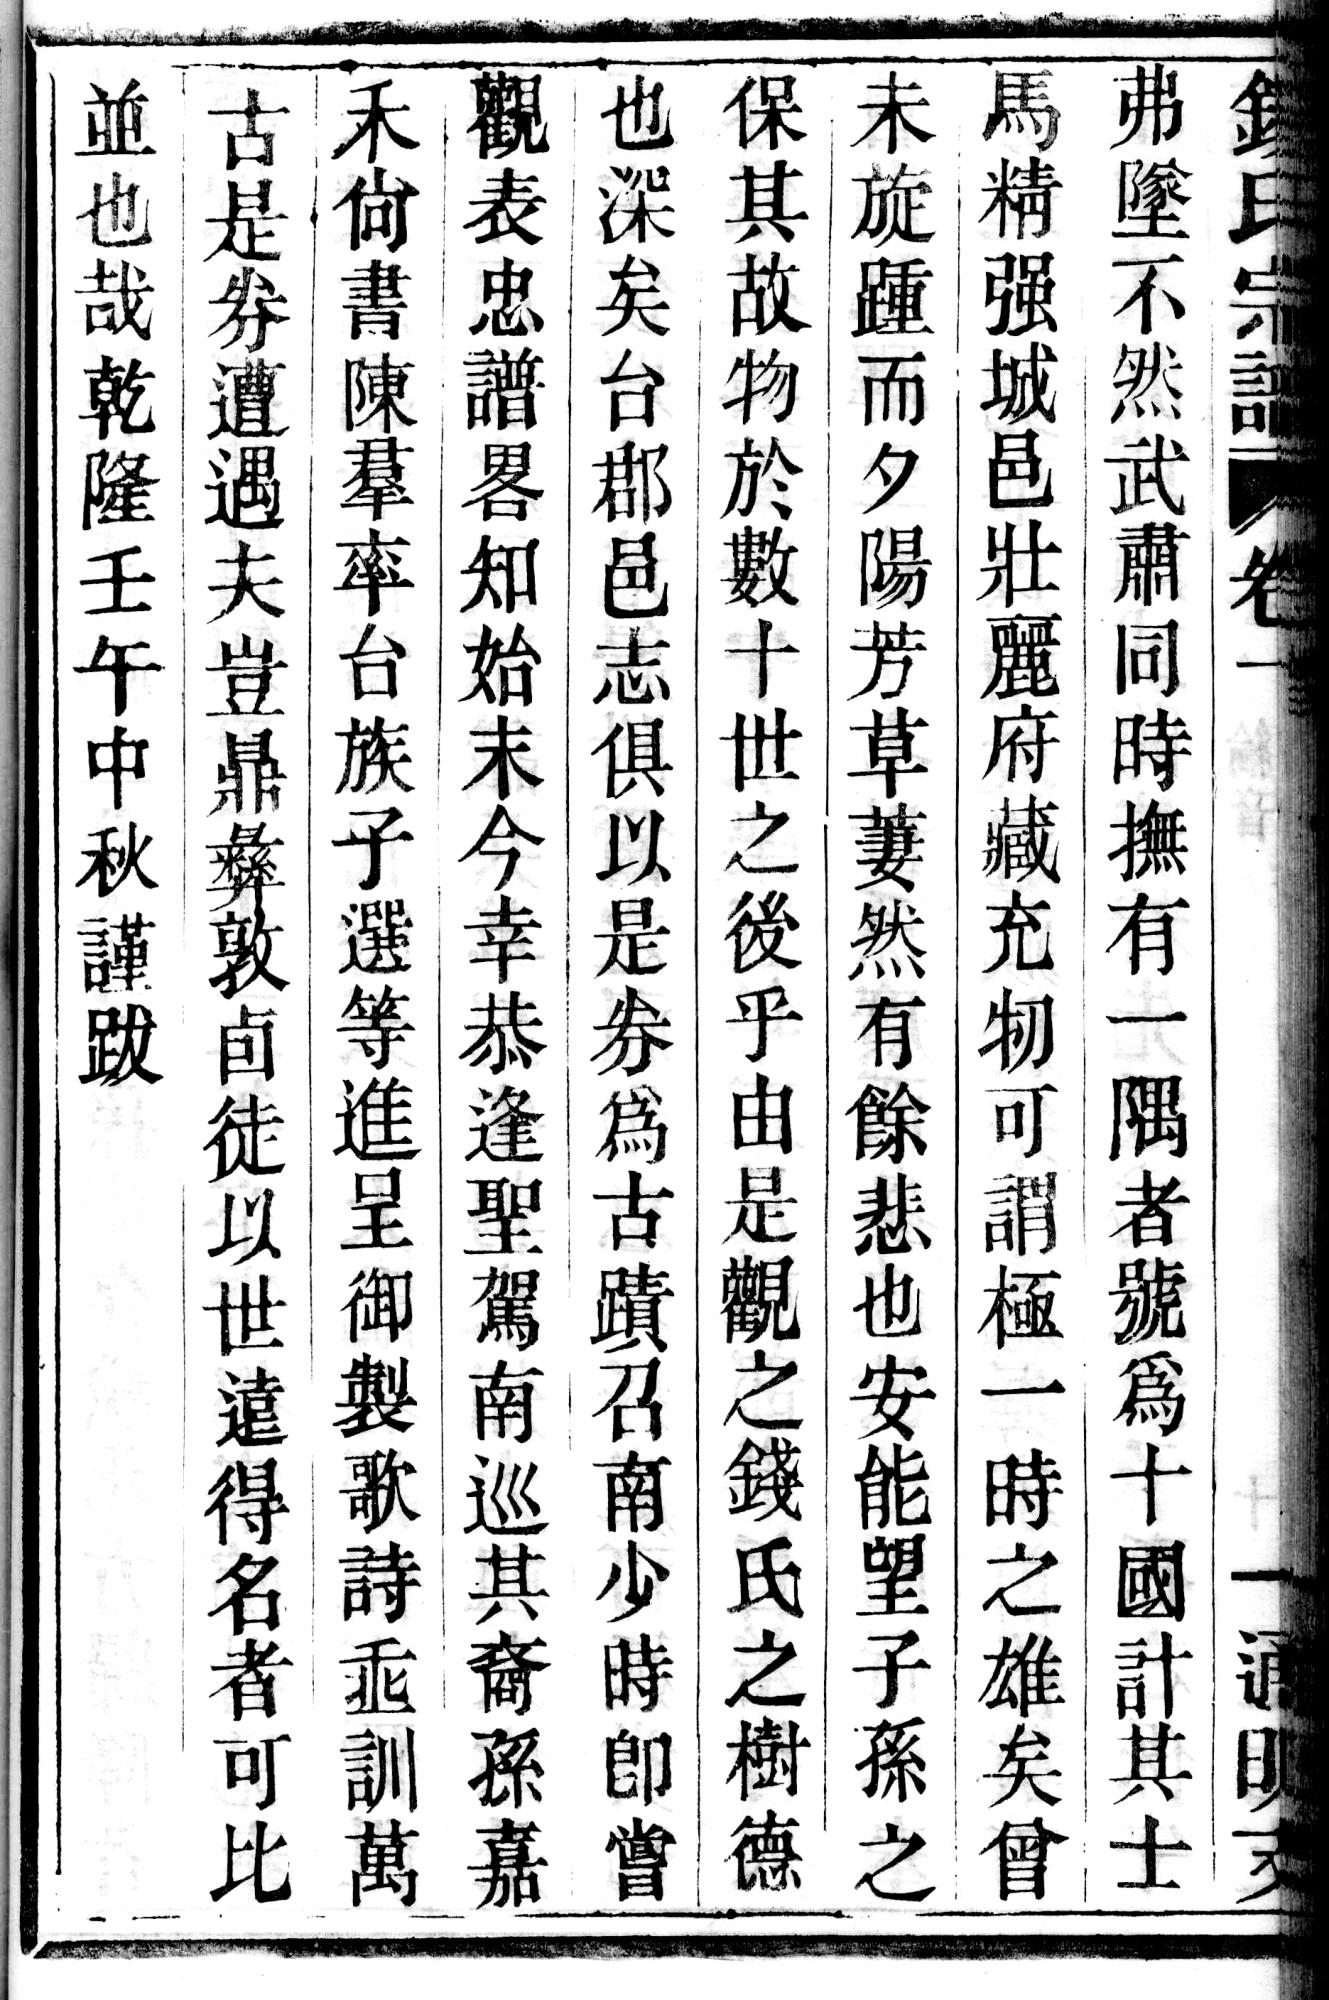 錢氏宗譜 卷一 一 通明
弗墜不然武肅同時撫有一隅者號爲十國計其士
馬精强城邑壯麗府藏充牣可謂極一時之雄矣曾
未旋踵而夕陽芳草萋然有餘悲也安能望子孫之
保其故物於數十世之後乎由是觀之錢氏之樹德
也深矣台郡邑志俱以是券爲古蹟召南少時卽嘗
觀表忠譜畧知始末今幸恭逢聖駕南巡其裔孫嘉
禾尙書陳羣率台族子選等進呈御製歌詩垂訓萬
古是券遭遇夫豈鼎彝敦卣徒以世遠得名者可比
並也哉乾隆壬午中秋謹跋